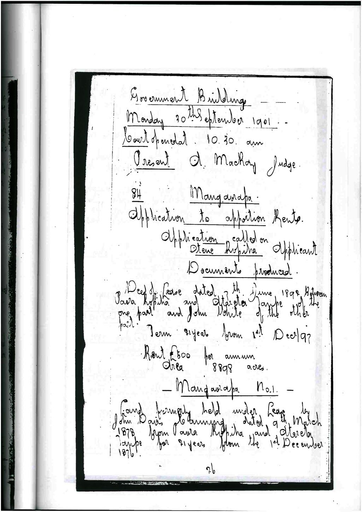 Government Building
Monday 30th September 1901.
Court opened at 10.30. am
Present A. MacKay Judge.
84 Mangawapa.
Application to apportion Rents.
Application called on
Ropiha Applicant
Documents produced.
Deed of Lease dated 7th June 1898 Between
Ropiha and of the
one part and John White of the other
part.
Term 21 years from 1st Dec/97
Rent £500 per annum
Area 8898 acres.
— Mangawapa No.1. —
Land formerly held under Lease by
John Davis Canning dated 9 March
1878 from Ropiha and
for 21 years from the 1st December
1876
26